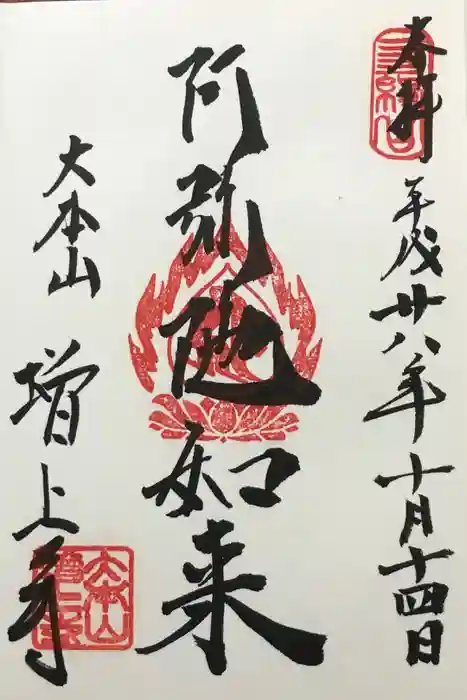 奉拝
平成廿八年十月十四日
阿弥陀如来
大本山
増上寺
大本山
増上寺